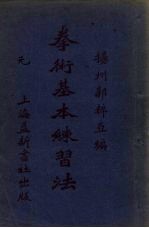 揚州郭粹亞編
拳術基本練習法
元
上海益新書社出版